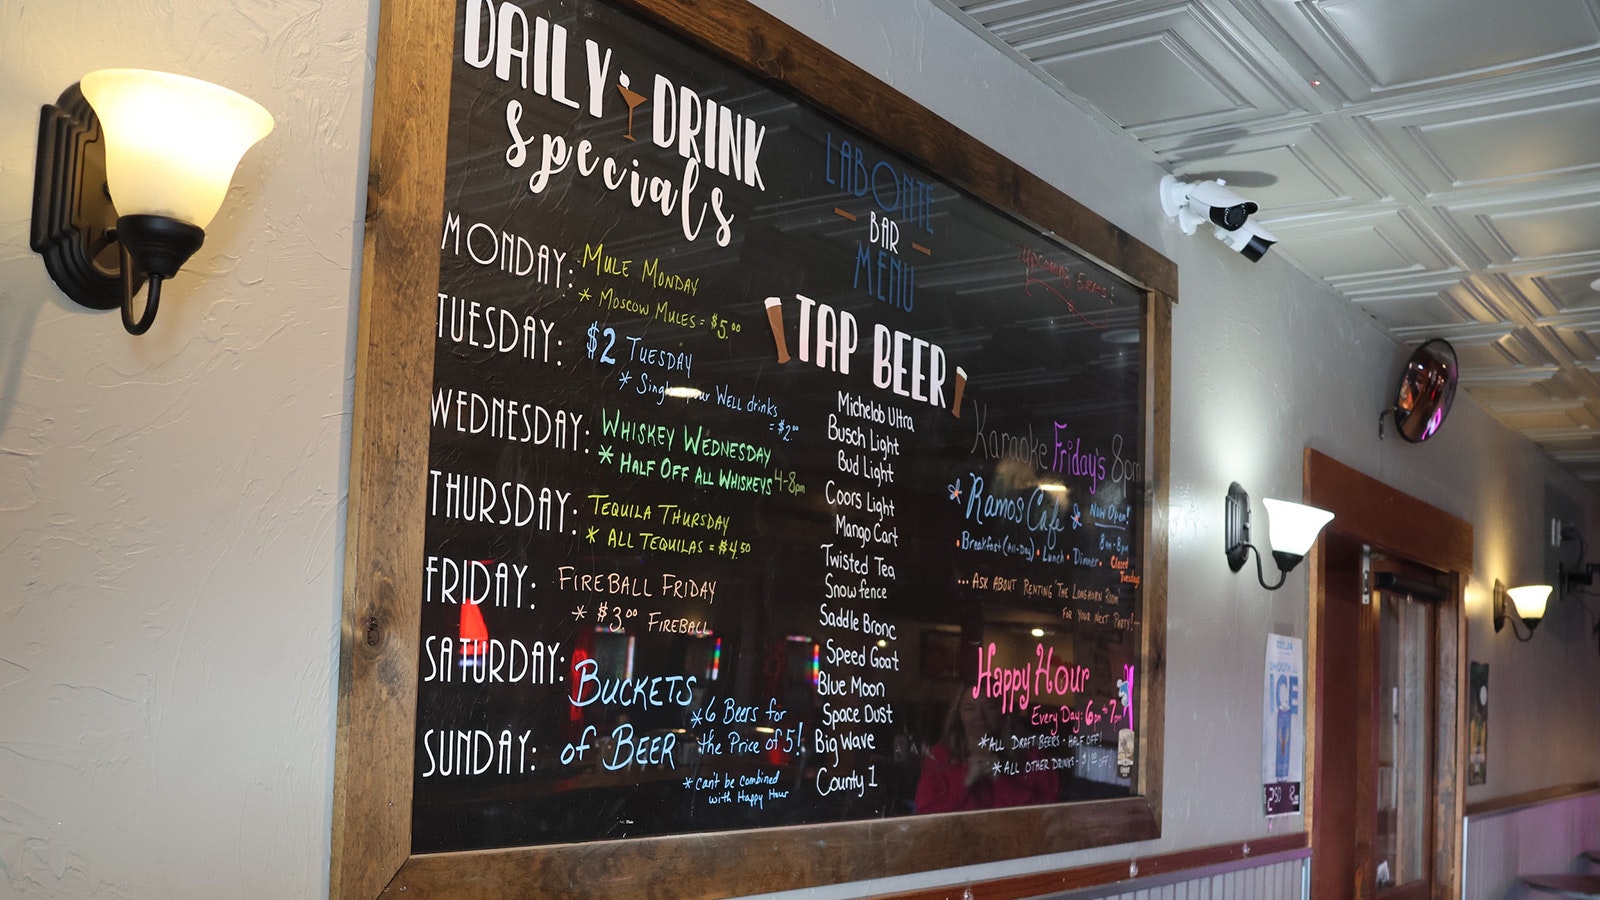 DAILY DRINK
Specials
MONDAY: MULE MONDAY
* MOSCOW MULES = $5.00
TUESDAY: $2 TUESDAY
* Single pour WELL drinks
= $2.00
WEDNESDAY: WHISKEY WEDNESDAY
* HALF OFF ALL WHISKEYS 4-8pm
THURSDAY: TEQUILA THURSDAY
* ALL TEQUILAS = $4.50
FRIDAY: FIREBALL FRIDAY
* $3.00 FIREBALL
SATURDAY: BUCKETS
SUNDAY: of BEER
* 6 Beers for
the Price of 5!
* can't be combined
with Happy Hour
LABONTE
BAR
MENU
TAP BEER
Michelob Ultra
Busch Light
Bud Light
Coors Light
Mango Cart
Twisted Tea
Snow fence
Saddle Bronc
Speed Goat
Blue Moon
Space Dust
Big Wave
County 1
Upcoming Events:
Karaoke Friday's 8pm
* Ramos Cafe *
Now Open!
8am-8pm
• Breakfast (All-Day) • Lunch • Dinner •
Closed
Tuesdays
... ASK ABOUT RENTING 'THE LONGHORN ROOM'
FOR YOUR NEXT PARTY!
Happy Hour
Every Day: 6pm to 7pm
* ALL DRAFT BEERS - HALF OFF!
* ALL OTHER DRINKS - $1.00 OFF!
SMOOTH AS
ICE
$2.50 12